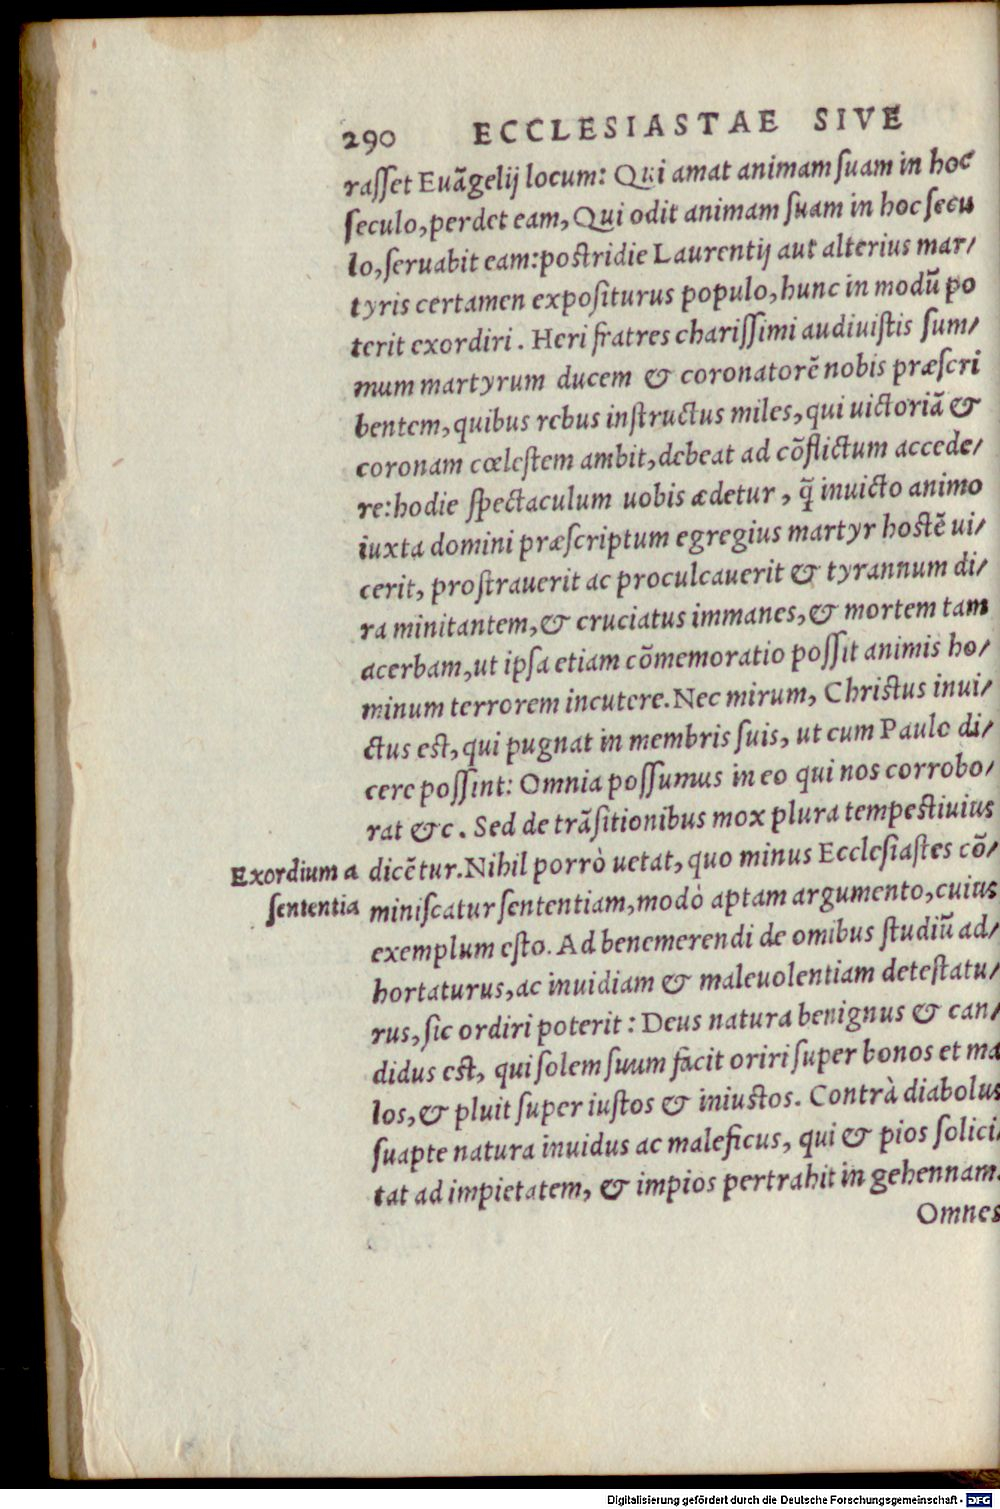 290 ECCLESIASTAE SIVE
rasset Euãgelij locum: Qui amat animam suam in hoc
seculo, perdet eam, Qui odit animam suam in hoc secu
lo, seruabit eam: postridie Laurentij aut alterius mar/
tyris certamen expositurus populo, hunc in modũ po
terit exordiri. Heri fratres charissimi audiuistis sum/
mum martyrum ducem & coronatorẽ nobis præscri
bentem, quibus rebus instructus miles, qui uictoriã &
coronam cœlestem ambit, debeat ad cõflictum accede/
re: hodie spectaculum uobis ædetur, q̃ inuicto animo
iuxta domini præscriptum egregius martyr hostẽ ui/
cerit, prostrauerit ac proculcauerit & tyrannum di/
ra minitantem, & cruciatus immanes, & mortem tam
acerbam, ut ipsa etiam cõmemoratio possit animis ho/
minum terrorem incutere. Nec mirum, Christus inui/
ctus est, qui pugnat in membris suis, ut cum Paulo di/
cere possint: Omnia possumus in eo qui nos corrobo/
rat &c. Sed de trãsitionibus mox plura tempestiuius
Exordium a
sententia
dicẽtur. Nihil porrò uetat, quo minus Ecclesiastes cõ/
miniscatur sententiam, modò aptam argumento, cuius
exemplum esto. Ad benemerendi de omibus studiũ ad/
hortaturus, ac inuidiam & maleuolentiam detestatu/
rus, sic ordiri poterit: Deus natura benignus & can/
didus est, qui solem suum facit oriri super bonos et ma
los, & pluit super iustos & iniustos. Contrà diabolus
suapte natura inuidus ac maleficus, qui & pios solici/
tat ad impietatem, & impios pertrahit in gehennam.
Omnes
Digitalisierung gefördert durch die Deutsche Forschungsgemeinschaft - DFG